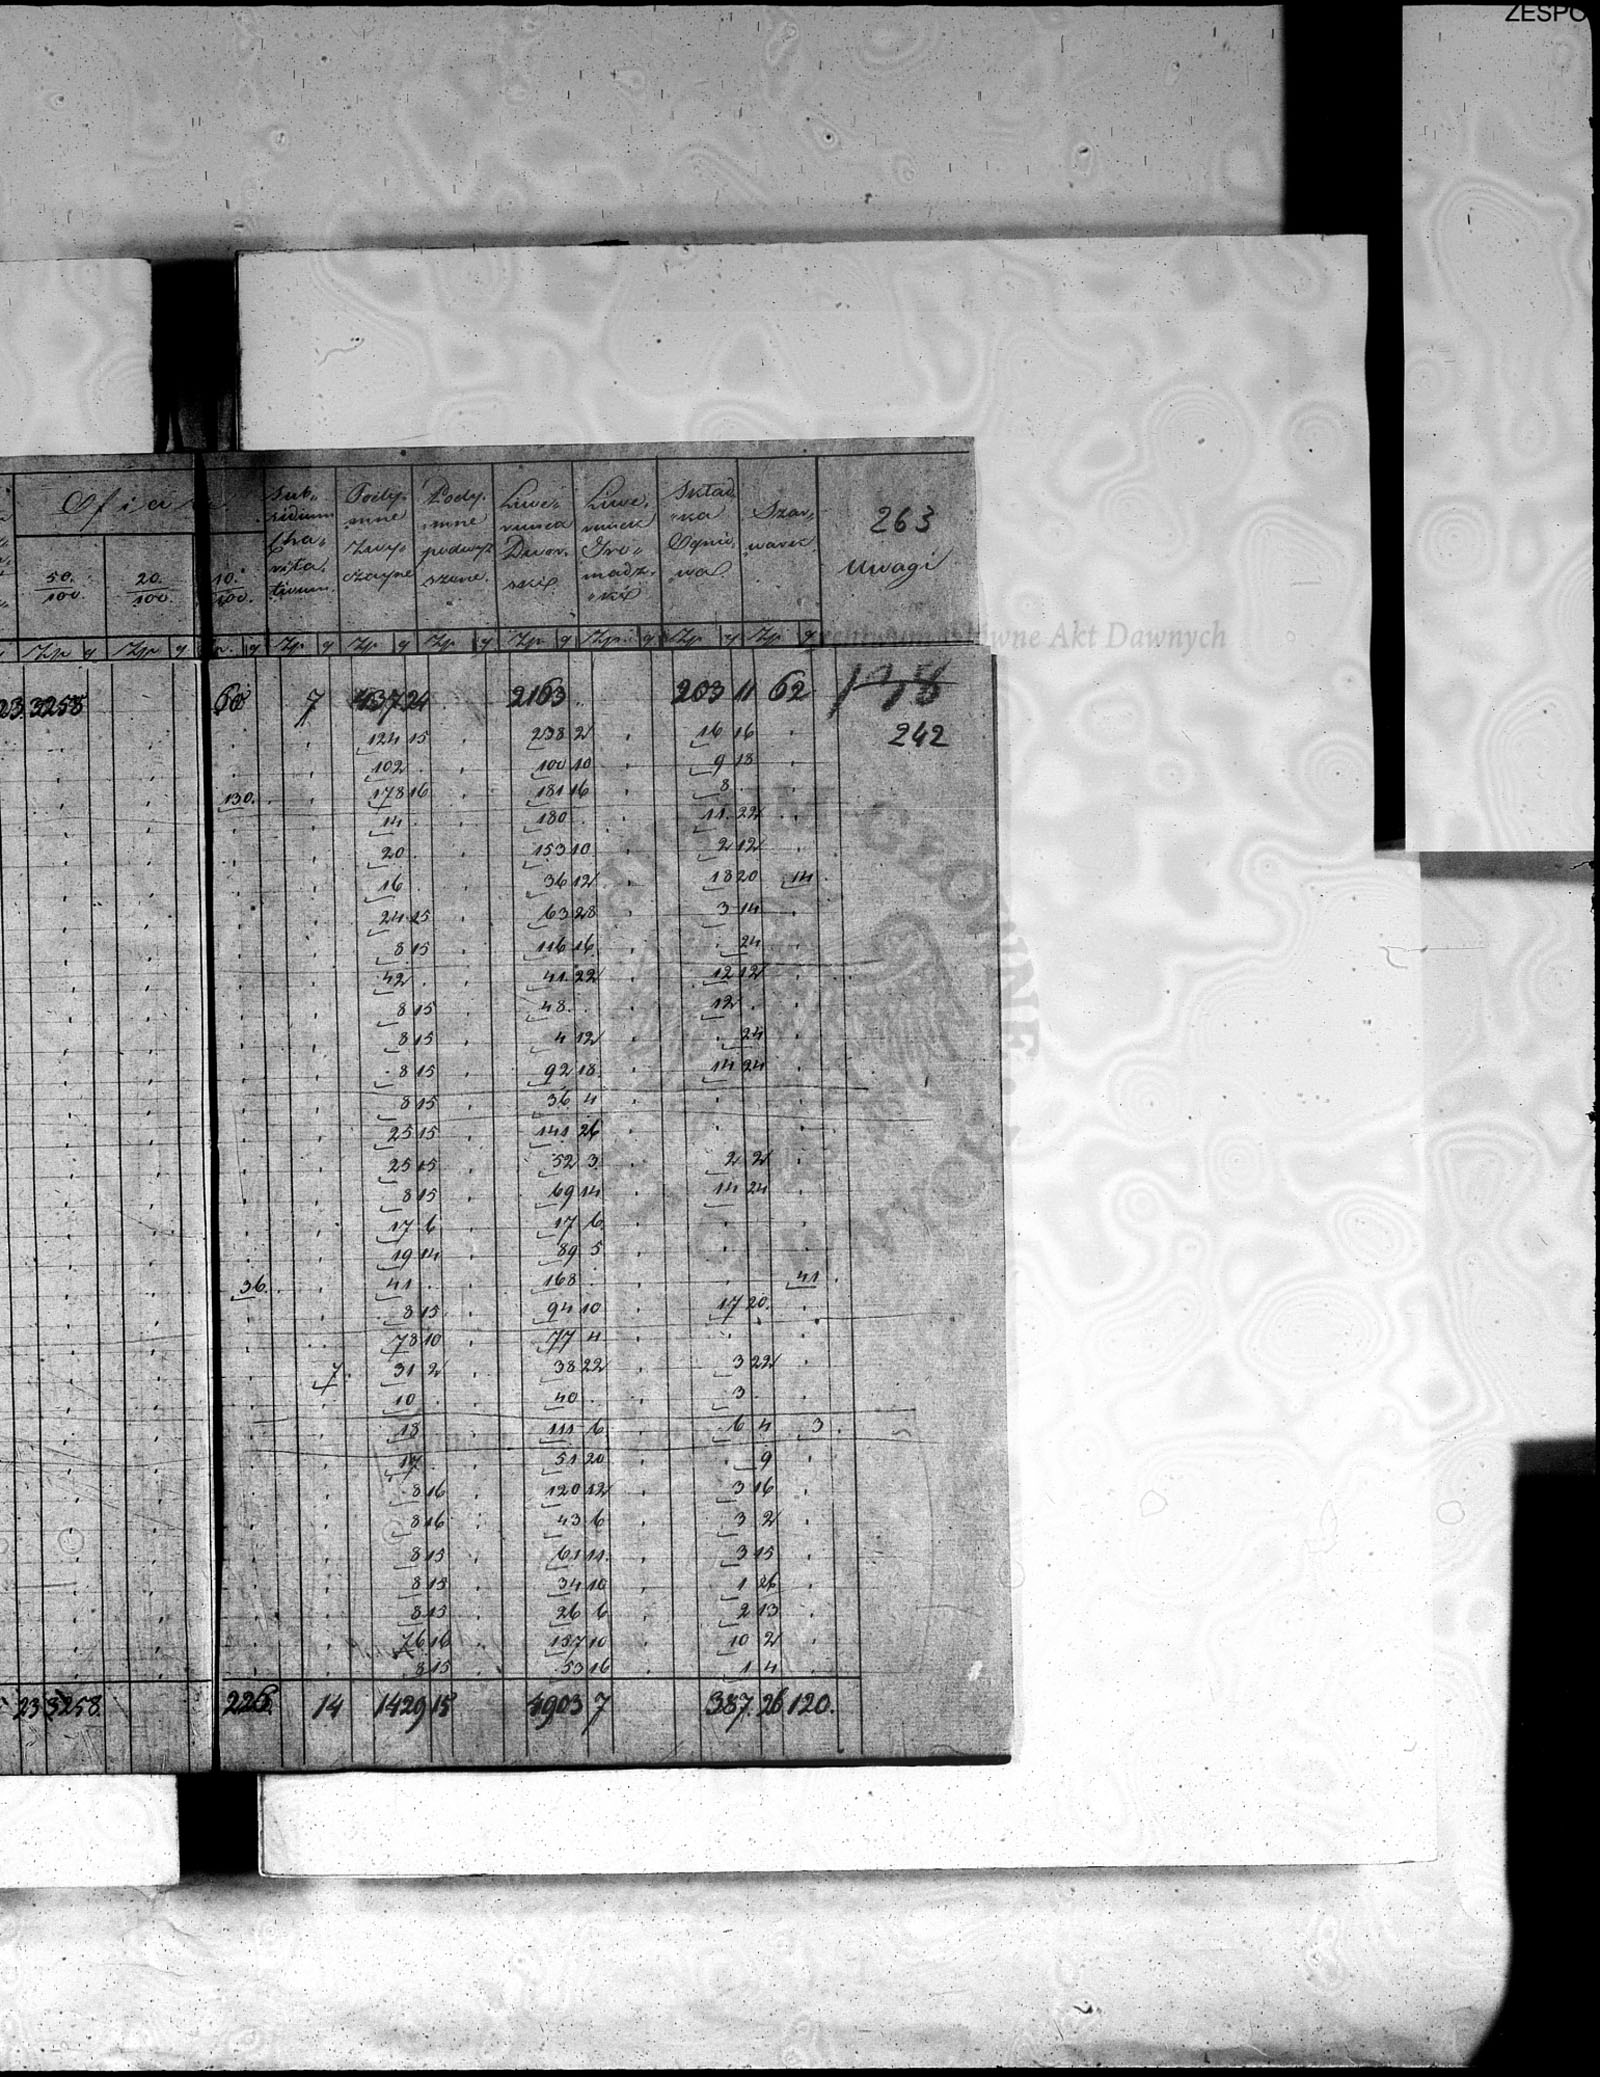 ZESPO
Ofiara
50. 100. 20. 100. 10. 100.
Sub„ sidium Cha„ rita„ tivum.
Pody„ mne Zwy„ czayne
Pody„ mne podwyż szone.
Liwe„ runek Dwor„ ski
Liwe„ runek Gro„ madz„
Skład„ ka Ognio„ wa
Szar„ wark.
263
Uwagi
Zp g Zp g Zp g Zp g Zp g Zp g Zp g Zp g Zp g
Archiwum Główne Akt Dawnych
23. 3258 60 7 437 24 2163. 203 11 62 198
124 15 238 2 16 16 242
102. 100 10 9 18
130. 178 16 181 16 8
14. 180. 11. 22
20. 153 10 2 12
16. 36 12 18 20 14.
24. 25 63 28 3 14
8 15 116 16 24
42. 41. 22 12 12
8 15 48. 12.
8 15 4 12 24
8 15 92 18. 14 24
8 15 36 4
25 15 141 26
25 15 52 3. 2 2
8 15 69 14 14 24
17 6 17 6
19 14 89 5
36. 41. 168. 41.
8 15. 94 10 17 20.
78 10 77 4
7. 31 2 38 22 3 22
10. 40. 3.
18 111 6 6 4 3.
17. 51 20 9
8 16 120 12 3 16
8 16 43 6 3 2
8 15 61 11. 3 15
8 15 34 10 1 26
8 15 26 6 2 13
76 16 157 10 10 2
8 15 53 16 1 4
23 3258. 226. 14 1429 15 4903 7 387. 26 120.